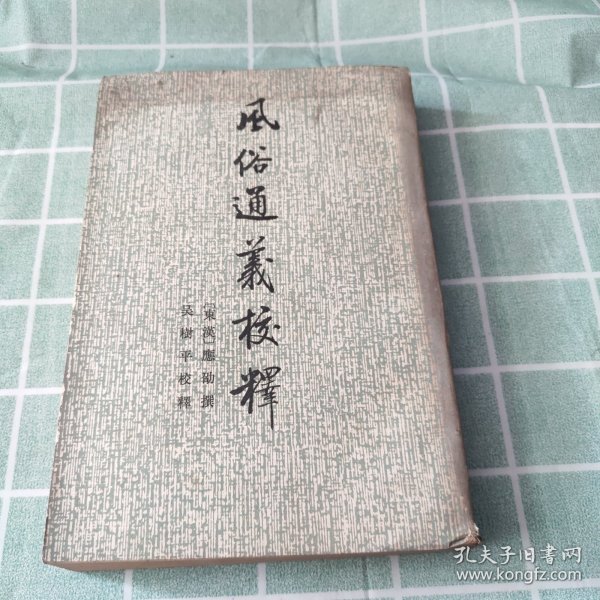 風俗通義校釋
〔東漢〕應劭撰
吴樹平校釋
孔夫子旧書网
www.kongfz.com